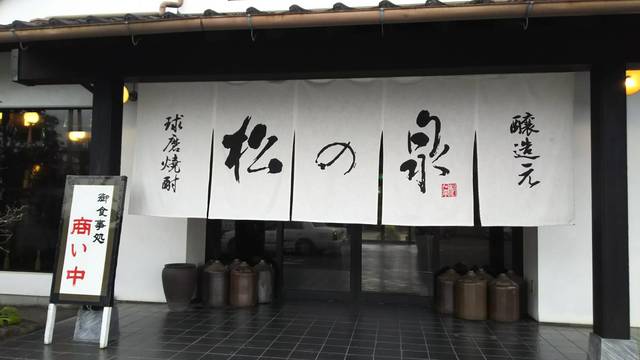 球磨焼酎
松の泉
醸造元
御食事処
商い中